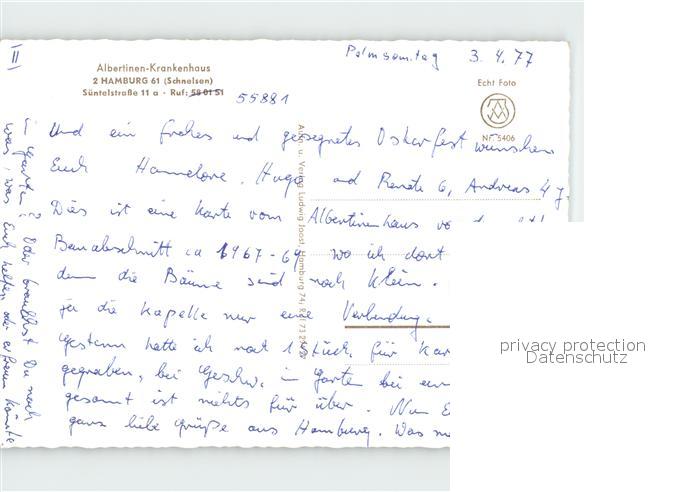 II
Albertinen-Krankenhaus
2 HAMBURG 61 (Schnelsen)
Süntelstraße 11 a · Ruf: 58 01 51
55881
Palmsonntag 3.4.77
Echt Foto
Nr. 5406
Und ein frohes und gesegnetes Osterfest wünschen
Euch Hannelore, Hugo und Renate 6, Andreas 4 J.
Dies ist eine Karte vom Albertinenhaus
Bauabschnitt ca 1967-69 wo ich dort
denn die Bäume sind noch klein.
ja die Kapelle nur eine Verbindung.
Gestern hatte ich noch 1 Stück für
gegraben, bei Geschw. in Garten bei
gesamt ist nichts für über. Nun
ganz liebe Grüße aus Hamburg. Was
Alb. u. Verlag Ludwig Joost, Hamburg 74, Ruf
i Garten? Oder brauchst Du noch
was, was Euch helfen oder erfreuen könnte
privacy protection
Datenschutz